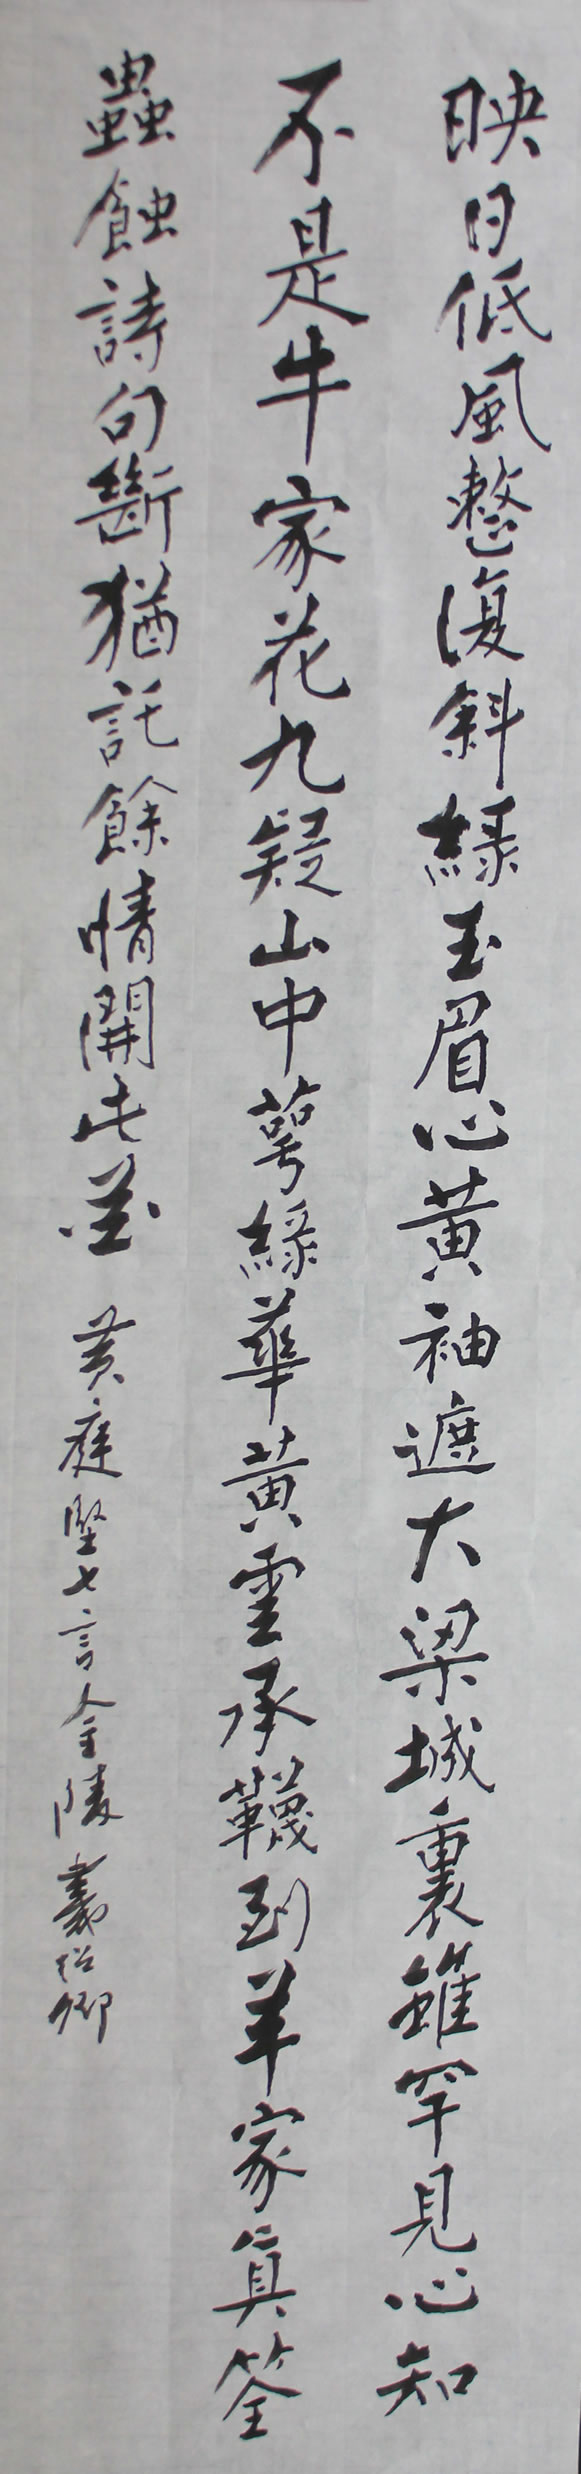 映日低風整復斜綠玉眉心黃袖遮大梁城裏雖罕見心知
不是牛家花九疑山中萼綠華黃雲承韈到羊家真筌
蟲蝕詩句斷猶託餘情開此花 黃庭堅七言金陵